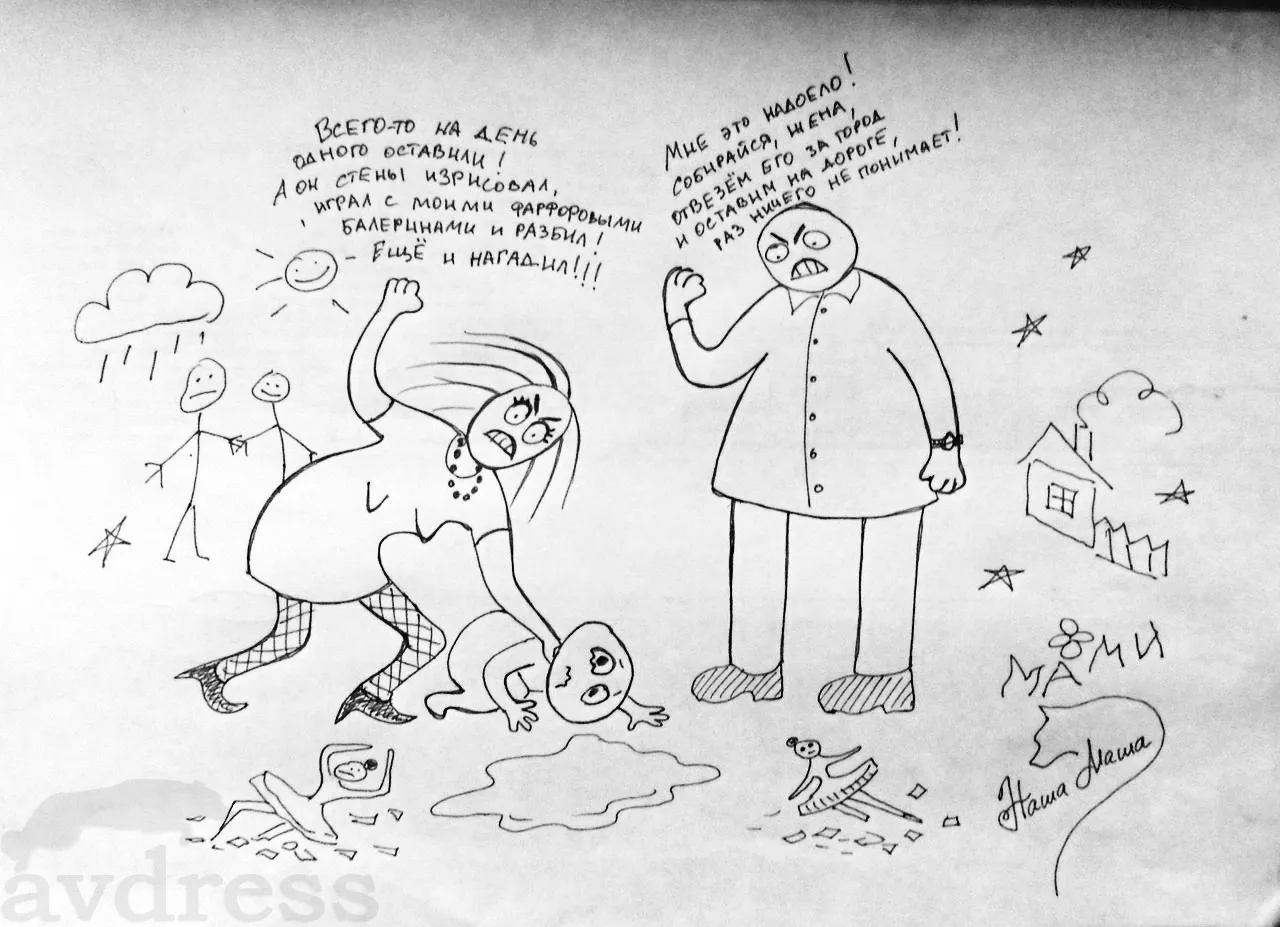 ВСЕГО-ТО НА ДЕНЬ
ОДНОГО ОСТАВИЛИ!
А ОН СТЕНЫ ИЗРИСОВАЛ,
ИГРАЛ С МОИМИ ФАРФОРОВЫМИ
БАЛЕРИНАМИ И РАЗБИЛ!
ЕЩЁ И НАГАДИЛ!!!
МНЕ ЭТО НАДОЕЛО!
СОБИРАЙСЯ, ЖЕНА,
ОТВЕЗЁМ ЕГО ЗА ГОРОД
И ОСТАВИМ НА ДОРОГЕ,
РАЗ НИЧЕГО НЕ ПОНИМАЕТ!
МАМИ
Наша Маша
avdress